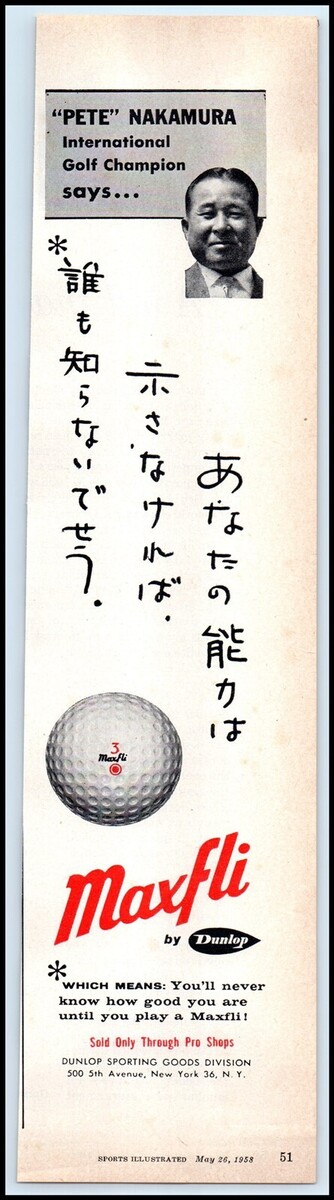 "PETE" NAKAMURA
International
Golf Champion
says...
*
あなたの能力は
示さなければ.
誰も知らないでせう.
3
Maxfli
Maxfli
by Dunlop
*
WHICH MEANS: You'll never
know how good you are
until you play a Maxfli!
Sold Only Through Pro Shops
DUNLOP SPORTING GOODS DIVISION
500 5th Avenue, New York 36, N. Y.
SPORTS ILLUSTRATED May 26, 1958 51